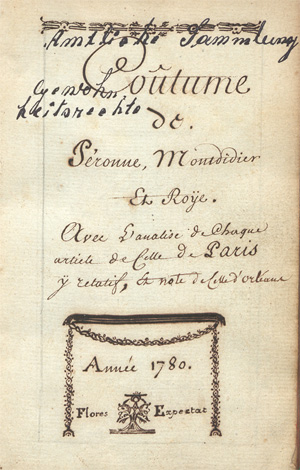 Amtliche Sammlung
Gewohn
heitsrechte
Coûtume
de.
Péronne, Montdidier
Et Roÿe.
Avec L'analise de Chaque
article de Celle de Paris
y relatif, Et note de Celle d'orléans
Année 1780.
Flores Expectat